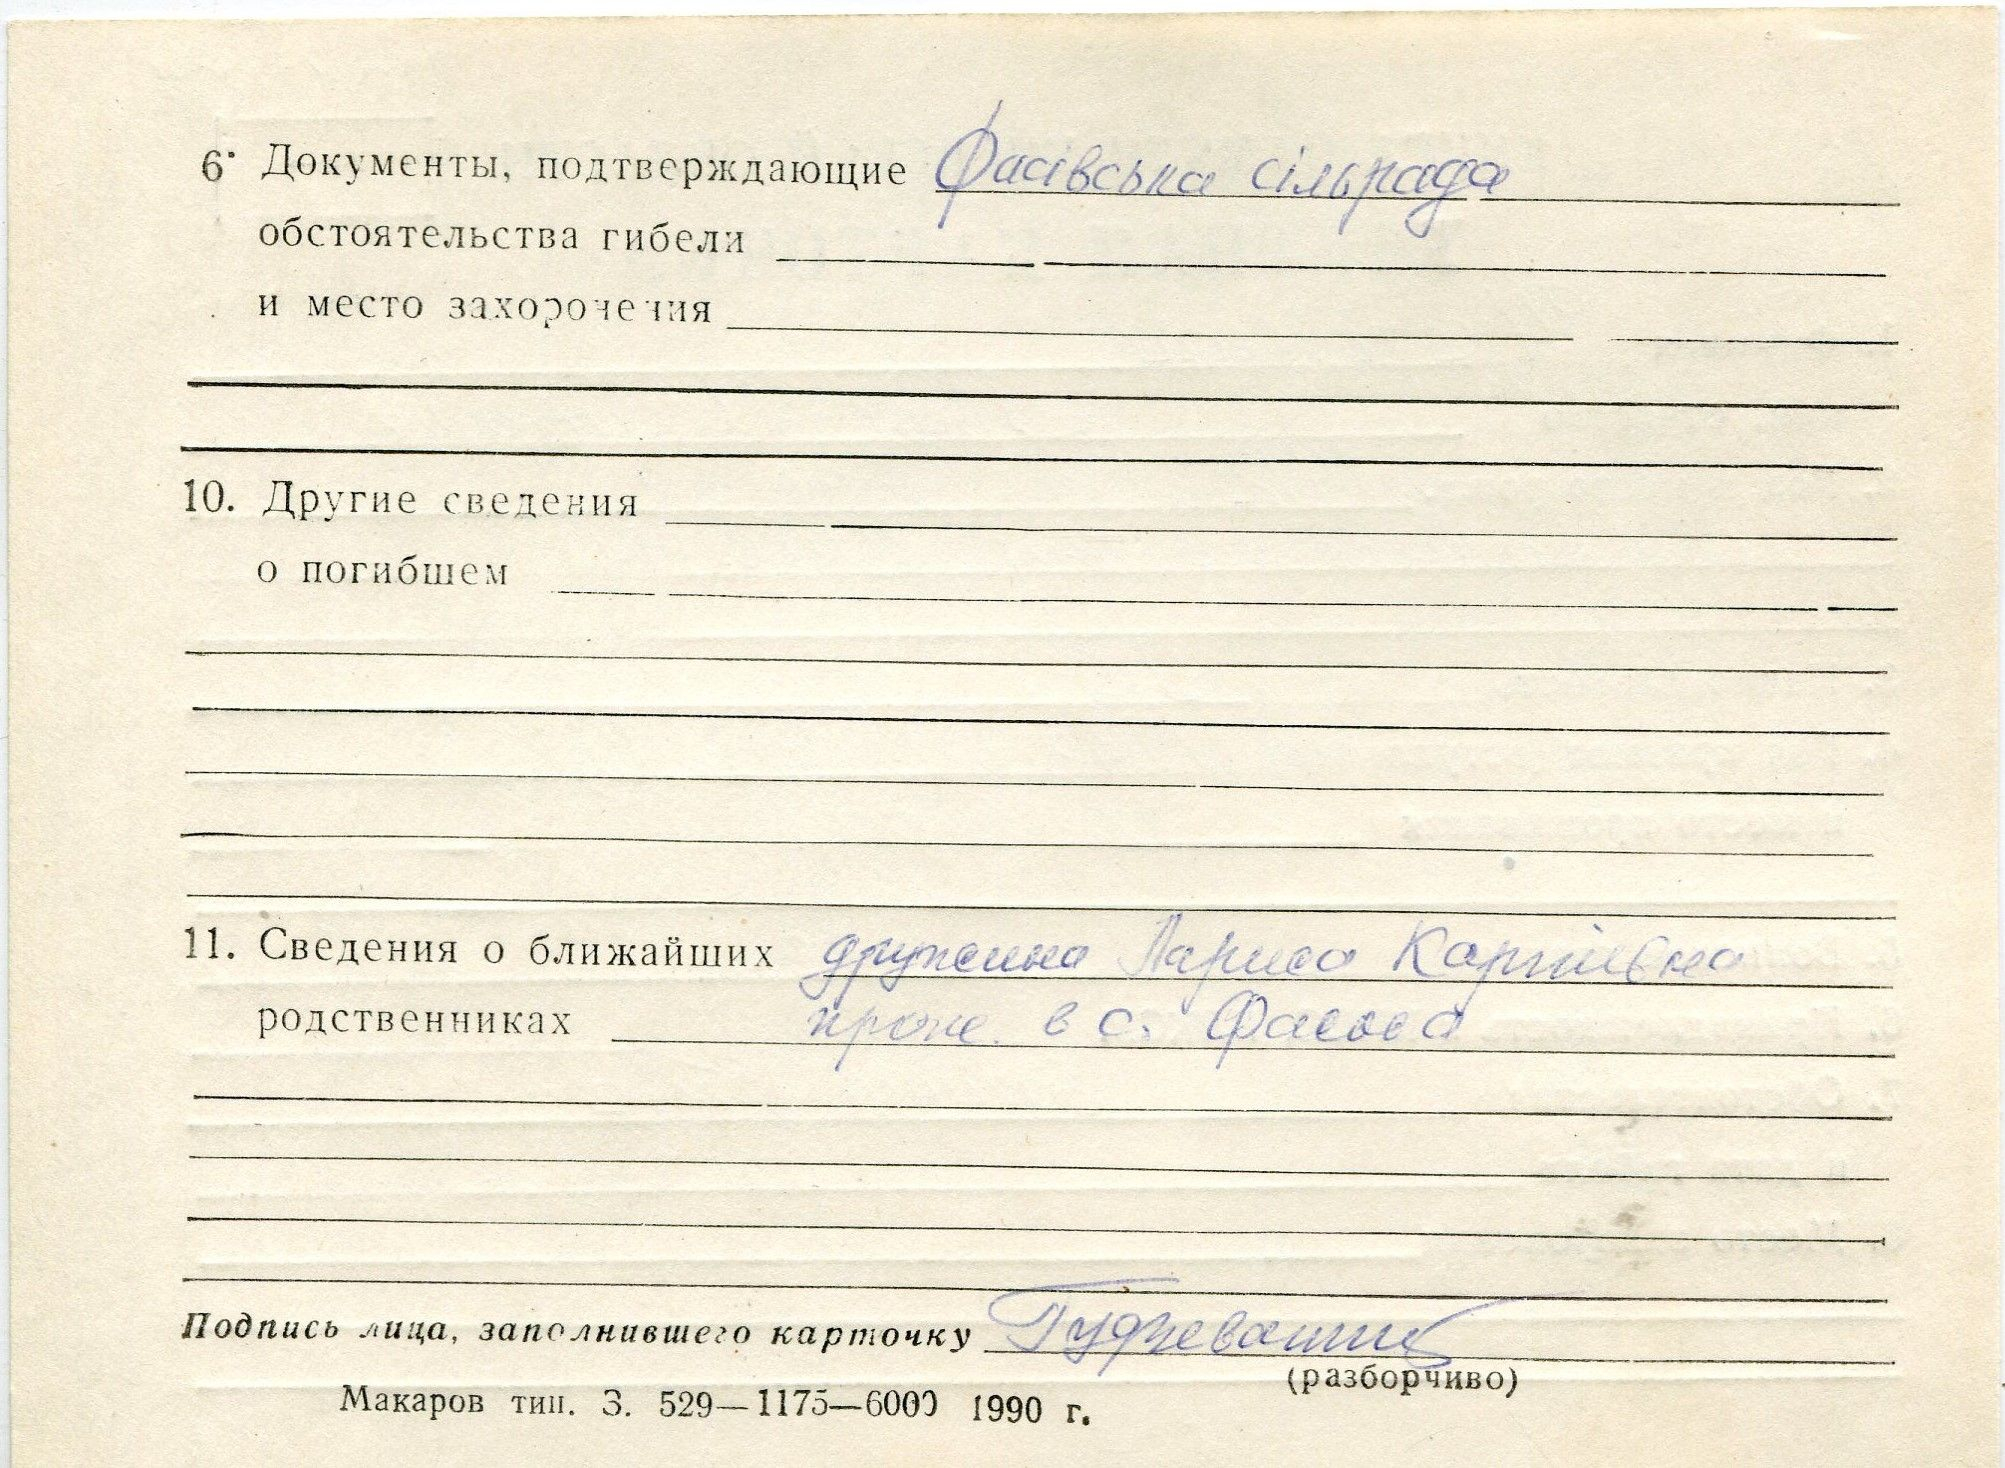 6. Документы, подтверждающие Фасівська сільрада
обстоятельства гибели
и место захоронения
10. Другие сведения
о погибшем
11. Сведения о ближайших дружина Лариса Карпівна
родственниках прож. в с. Фасова
Подпись лица, заполнившего карточку
(разборчиво)
Макаров тип. З. 529—1175—6000 1990 г.